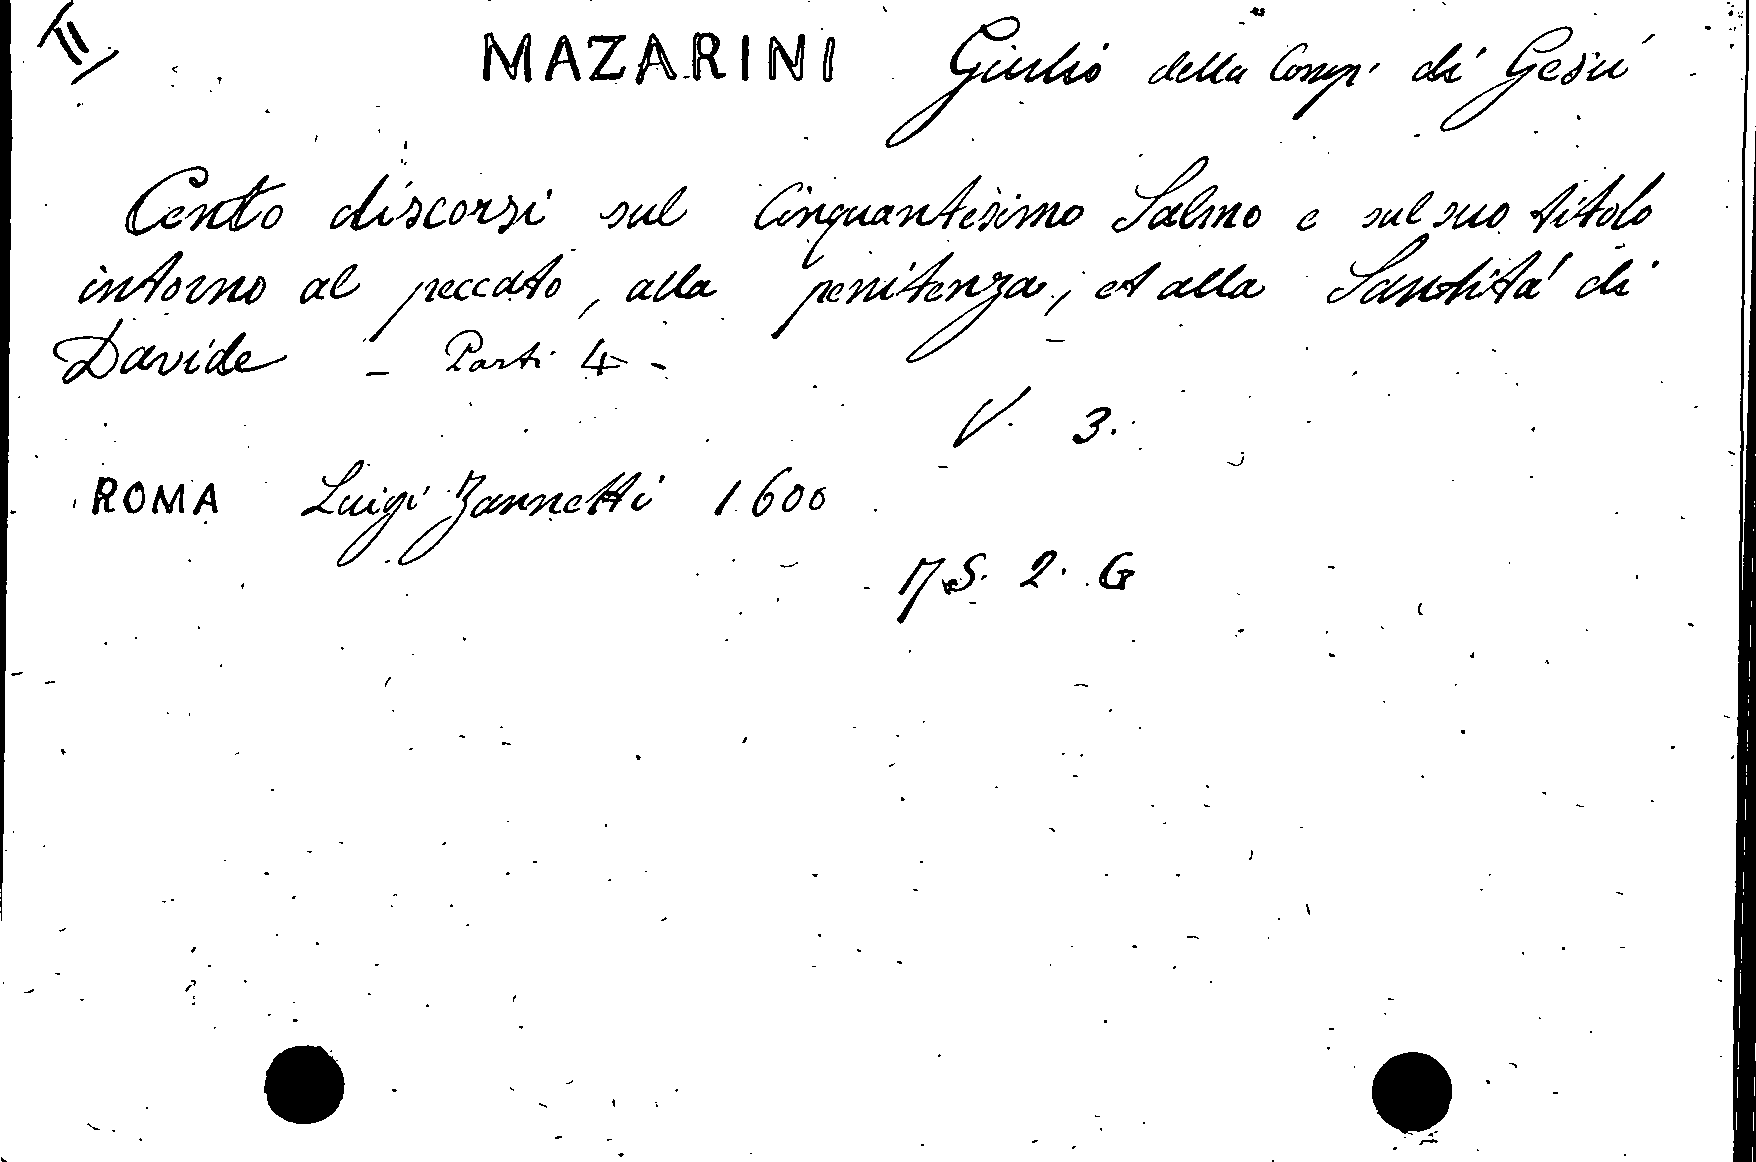 II
MAZARINI Giulio della Comp. di Gesù
Cento discorsi sul Cinquantesimo Salmo e sul suo titolo
intorno al peccato, alla penitenza, et alla Santità di
Davide - Parti 4 -
V. 3.
ROMA Luigi Zannetti 1600
17 S. 2. G